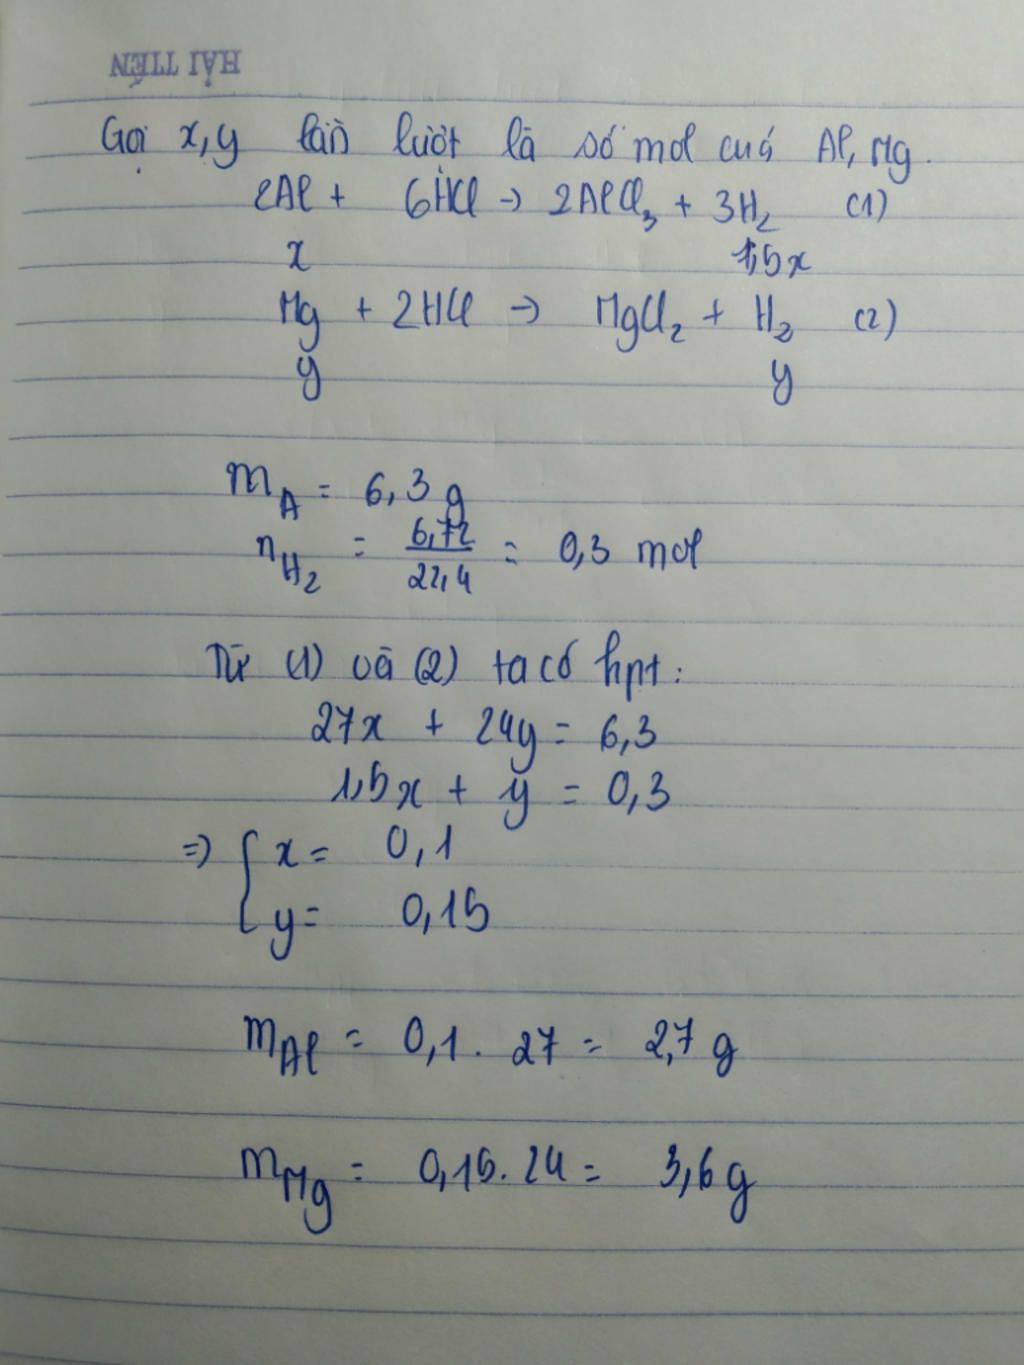 HẢI TIẾN
Gọi x, y lần lượt là số mol của Al, Mg.
2Al + 6HCl → 2AlCl₃ + 3H₂ (1)
x 1,5x
Mg + 2HCl → MgCl₂ + H₂ (2)
y y
m_A = 6,3 g
n_H₂ = 6,72/22,4 = 0,3 mol
Từ (1) và (2) ta có hpt:
27x + 24y = 6,3
1,5x + y = 0,3
=> { x = 0,1
y = 0,15
m_Al = 0,1 . 27 = 2,7 g
m_Mg = 0,15 . 24 = 3,6 g